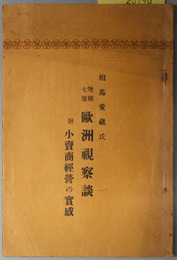 相馬愛藏氏
增補
七版
歐洲視察談
附 小賣商經營の實感